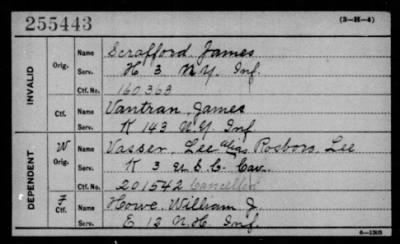 255443 (3-H-4)
INVALID
Orig. Name Scrafford James
Serv. H 3 N.Y. Inf.
Ctf. No. 160363
Ctf. Name Vantran, James
Serv. K 143 N.Y. Inf
DEPENDENT
W Orig. Name Vasser, Lee alias Rosboro, Lee
Serv. K 3 U.S.C. Cav.
Ctf. No. 201542 Cancelled
Ctf. Name Howe, William J.
Serv. E 13 N.H. Inf.